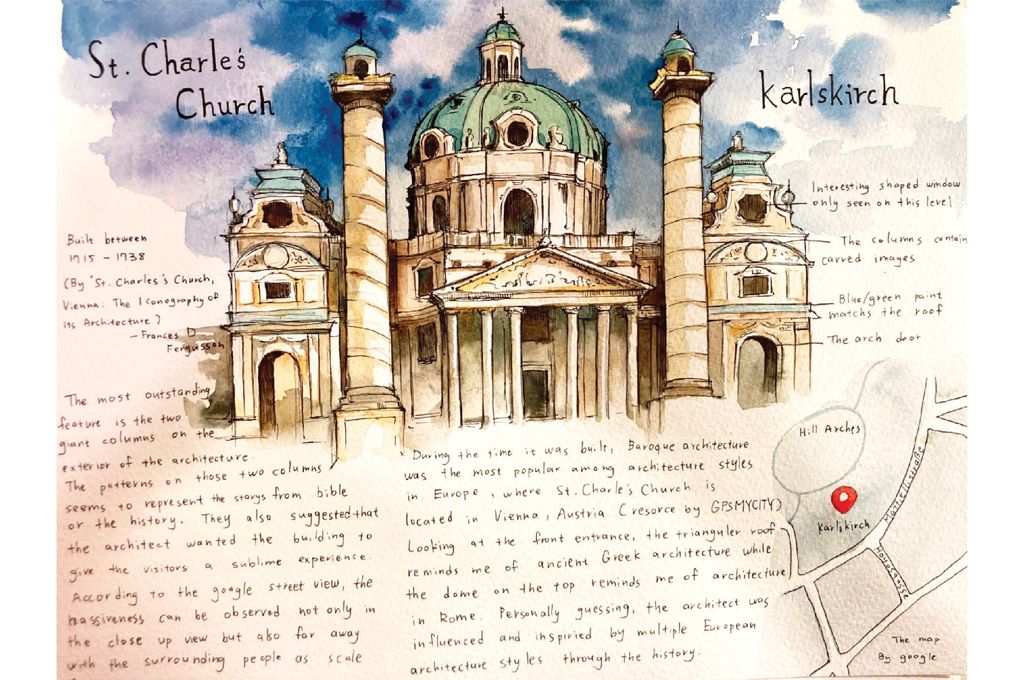 St. Charle's
Church
Karlskirch
Interesting shaped window
only seen on this level
The columns contain
carved images
Blue/green paint
matchs the roof
The arch door
Built between
1715 - 1738
(By "St. Charles's Church,
Vienna: The Iconography of
its Architecture)
- Frances D
Fergusson
The most outstanding
feature is the two
giant columns on the
exterior of the architecture.
The patterns on those two columns
seems to represent the storys from bible
or the history. They also suggested that
the architect wanted the building to
give the visitors a sublime experience.
According to the google street view, the
massiveness can be observed not only in
the close up view but also far away
with the surrounding people as scale
During the time it was built, Baroque architecture
was the most popular among architecture styles
in Europe, where St. Charle's Church is
located in Vienna, Austria (resorce by GPSMYCITY)
Looking at the front entrance, the trianguler roof
reminds me of ancient Greek architecture while
the dome on the top reminds me of architecture
in Rome. Personally guessing, the architect was
influenced and inspiried by multiple European
architecture styles through the history.
Hill Arches
Karlskirch
The map
By google